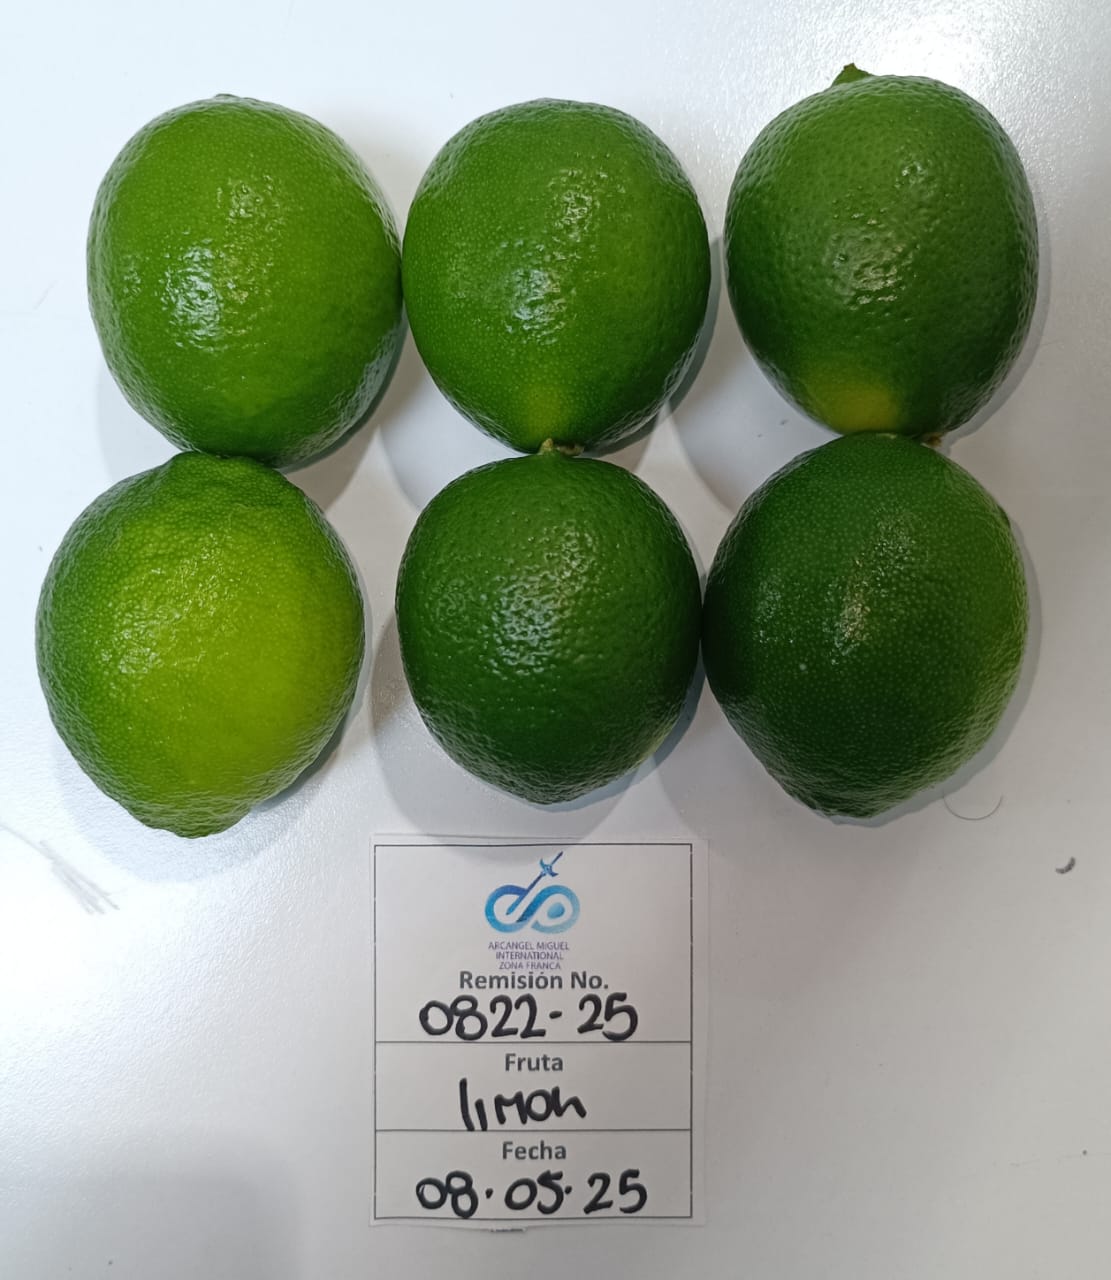 ARCANGEL MIGUEL
INTERNATIONAL
ZONA FRANCA
Remisión No.
0822-25
Fruta
limon
Fecha
08.05.25